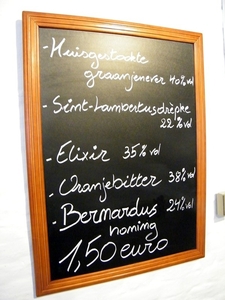 - Huisgestookte
graanjenever 40% vol
- Sint-Lambertusdrèpke
22% vol
- Elixir 35% vol
- Oranjebitter 38% vol
- Bernardus 24% vol
honing
1,50 euro